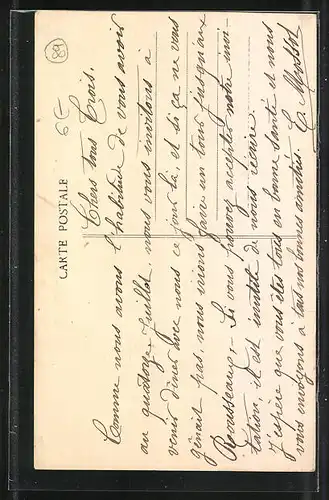 89
6€
CARTE POSTALE
Chers tous Trois.
Comme nous avons l'habitude de vous avoir
au quatorze Juillet nous vous invitons à
venir dîner avec nous ce jour là, et si ça ne vous
gênait pas, nous irions faire un tour jusqu'aux
Rousseaux, - Si vous pouvez accepter notre invi-
tation, il est inutile de nous écrire.
J'espère que vous êtes tous en bonne santé et nous
vous envoyons à tous nos bonnes amitiés.